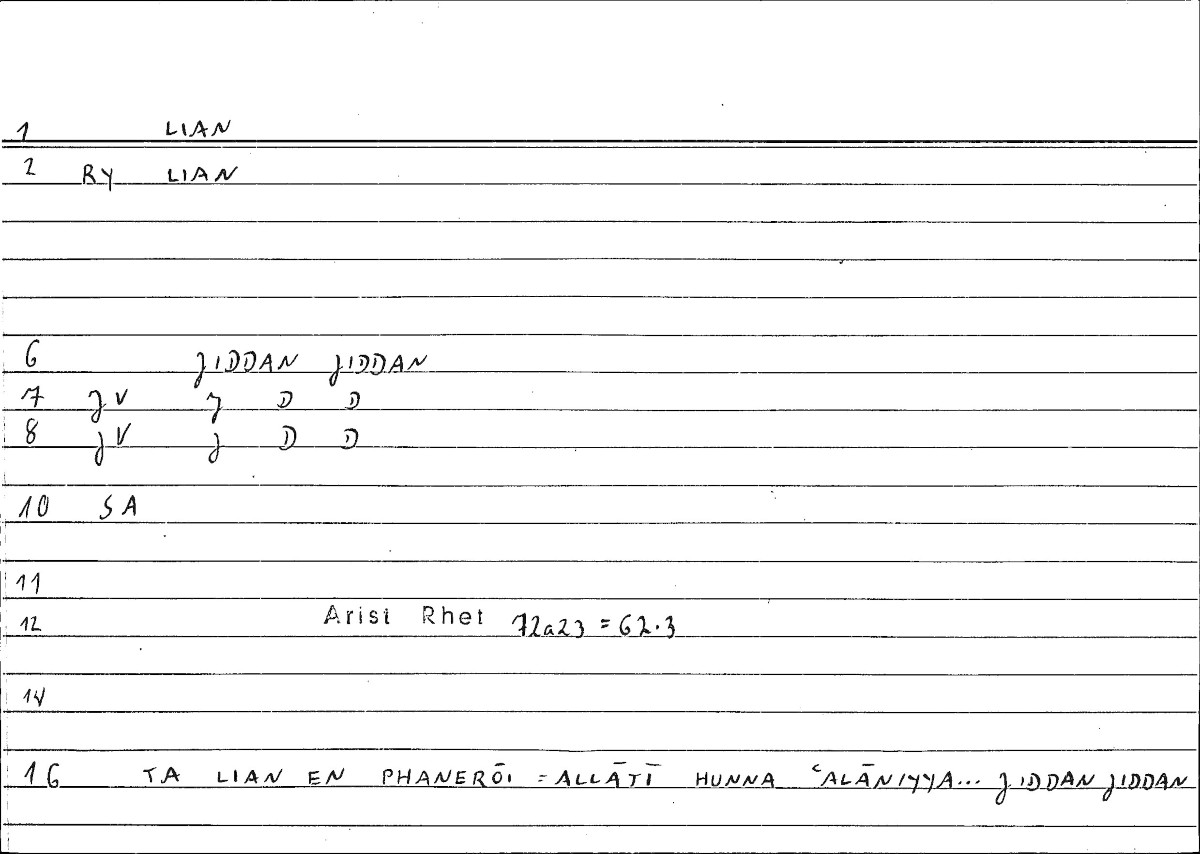 1 LIAN
2 RY LIAN
6 JIDDAN JIDDAN
7 JV J D D
8 JV J D D
10 SA
11
12 Arist Rhet 72a23 = 62.3
14
16 TA LIAN EN PHANERŌI = ALLĀTĪ HUNNA ʿALĀNIYYA... JIDDAN JIDDAN